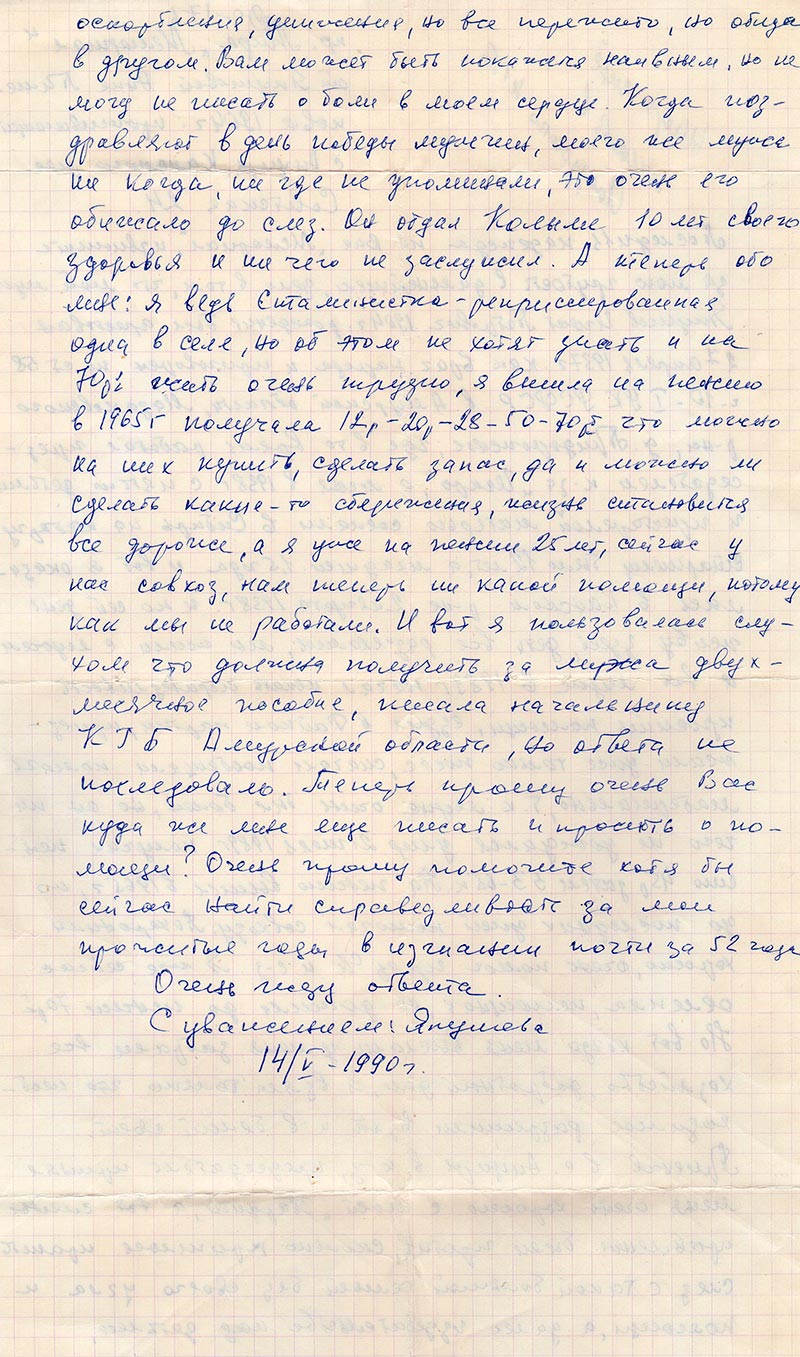 оскорбления, унижения, но все пережито, но обида
в другом. Вам может быть покажися наивным, но не
могу не писать о боли в моем сердце. Когда поз-
дравляют в день победы мужчин, моего же мужа
ни когда, ни где не упоминали, это очень его
обижало до слез. Он отдал Колыме 10 лет своего
здоровья и ни чего не заслужил. А теперь обо
мне: я ведь Сталинистка-реприссированная
одна в селе, но об этом не хотят знать и на
70р. жить очень трудно, я вышла на пенсию
в 1965г получала 12р-20р-28-50-70р что можно
на них купить, сделать запас, да и можно ли
сделать какие-то сбережения, жизнь становится
все дороже, а я уже на пенсии 25 лет, сейчас у
нас совхоз, нам теперь ни какой помощи, потому
как мы не работали. И вот я пользовалась слу-
хом что должна получить за мужа двух-
месячное пособие, писала начальнику
КГБ Амурской области, но ответа не
последовало. Теперь прошу очень Вас
куда же мне еще писать и просить о по-
мощи? Очень прошу помогите хотя бы
сейчас найти справедливость за мои
прожитые годы в изгнании почти за 52 года
Очень жду ответа.
С уважением: Якушева
14/V-1990г.